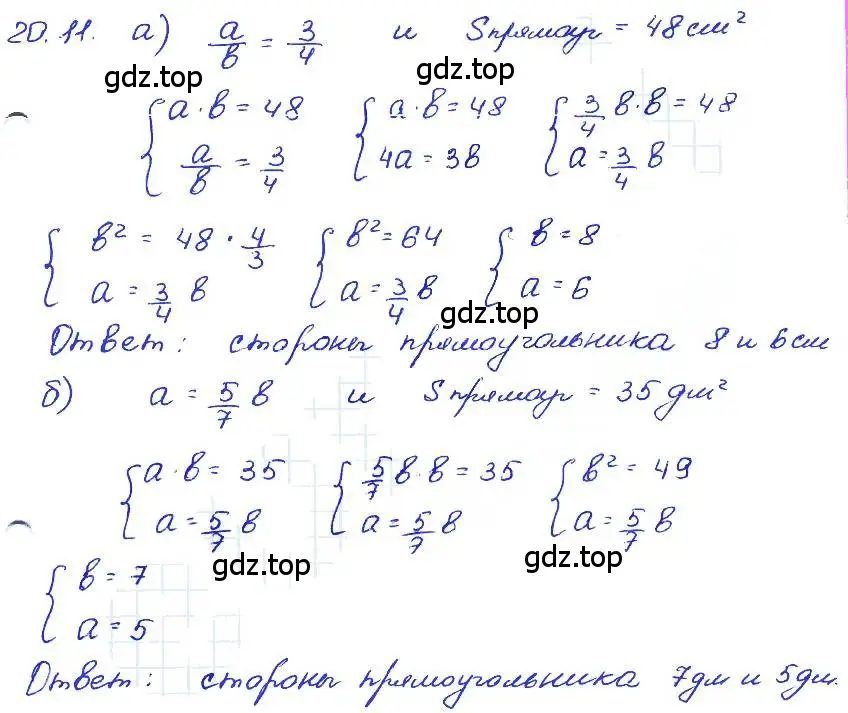 20.11. а) a/b = 3/4 и Sпрямоуг = 48 см²
gdz.top gdz.top
{ a·b = 48 { a·b = 48 { 3/4 b·b = 48
{ a/b = 3/4 { 4a = 3b { a = 3/4 b
{ b² = 48 · 4/3 { b² = 64 { b = 8
{ a = 3/4 b { a = 3/4 b { a = 6
gdz.top
Ответ: стороны прямоугольника 8 и 6 см
б) a = 5/7 b и Sпрямоуг = 35 дм²
gdz.top
{ a·b = 35 { 5/7 b·b = 35 { b² = 49
{ a = 5/7 b { a = 5/7 b { a = 5/7 b
gdz.top gdz.top
{ b = 7
{ a = 5
Ответ: стороны прямоугольника 7дм и 5дм.